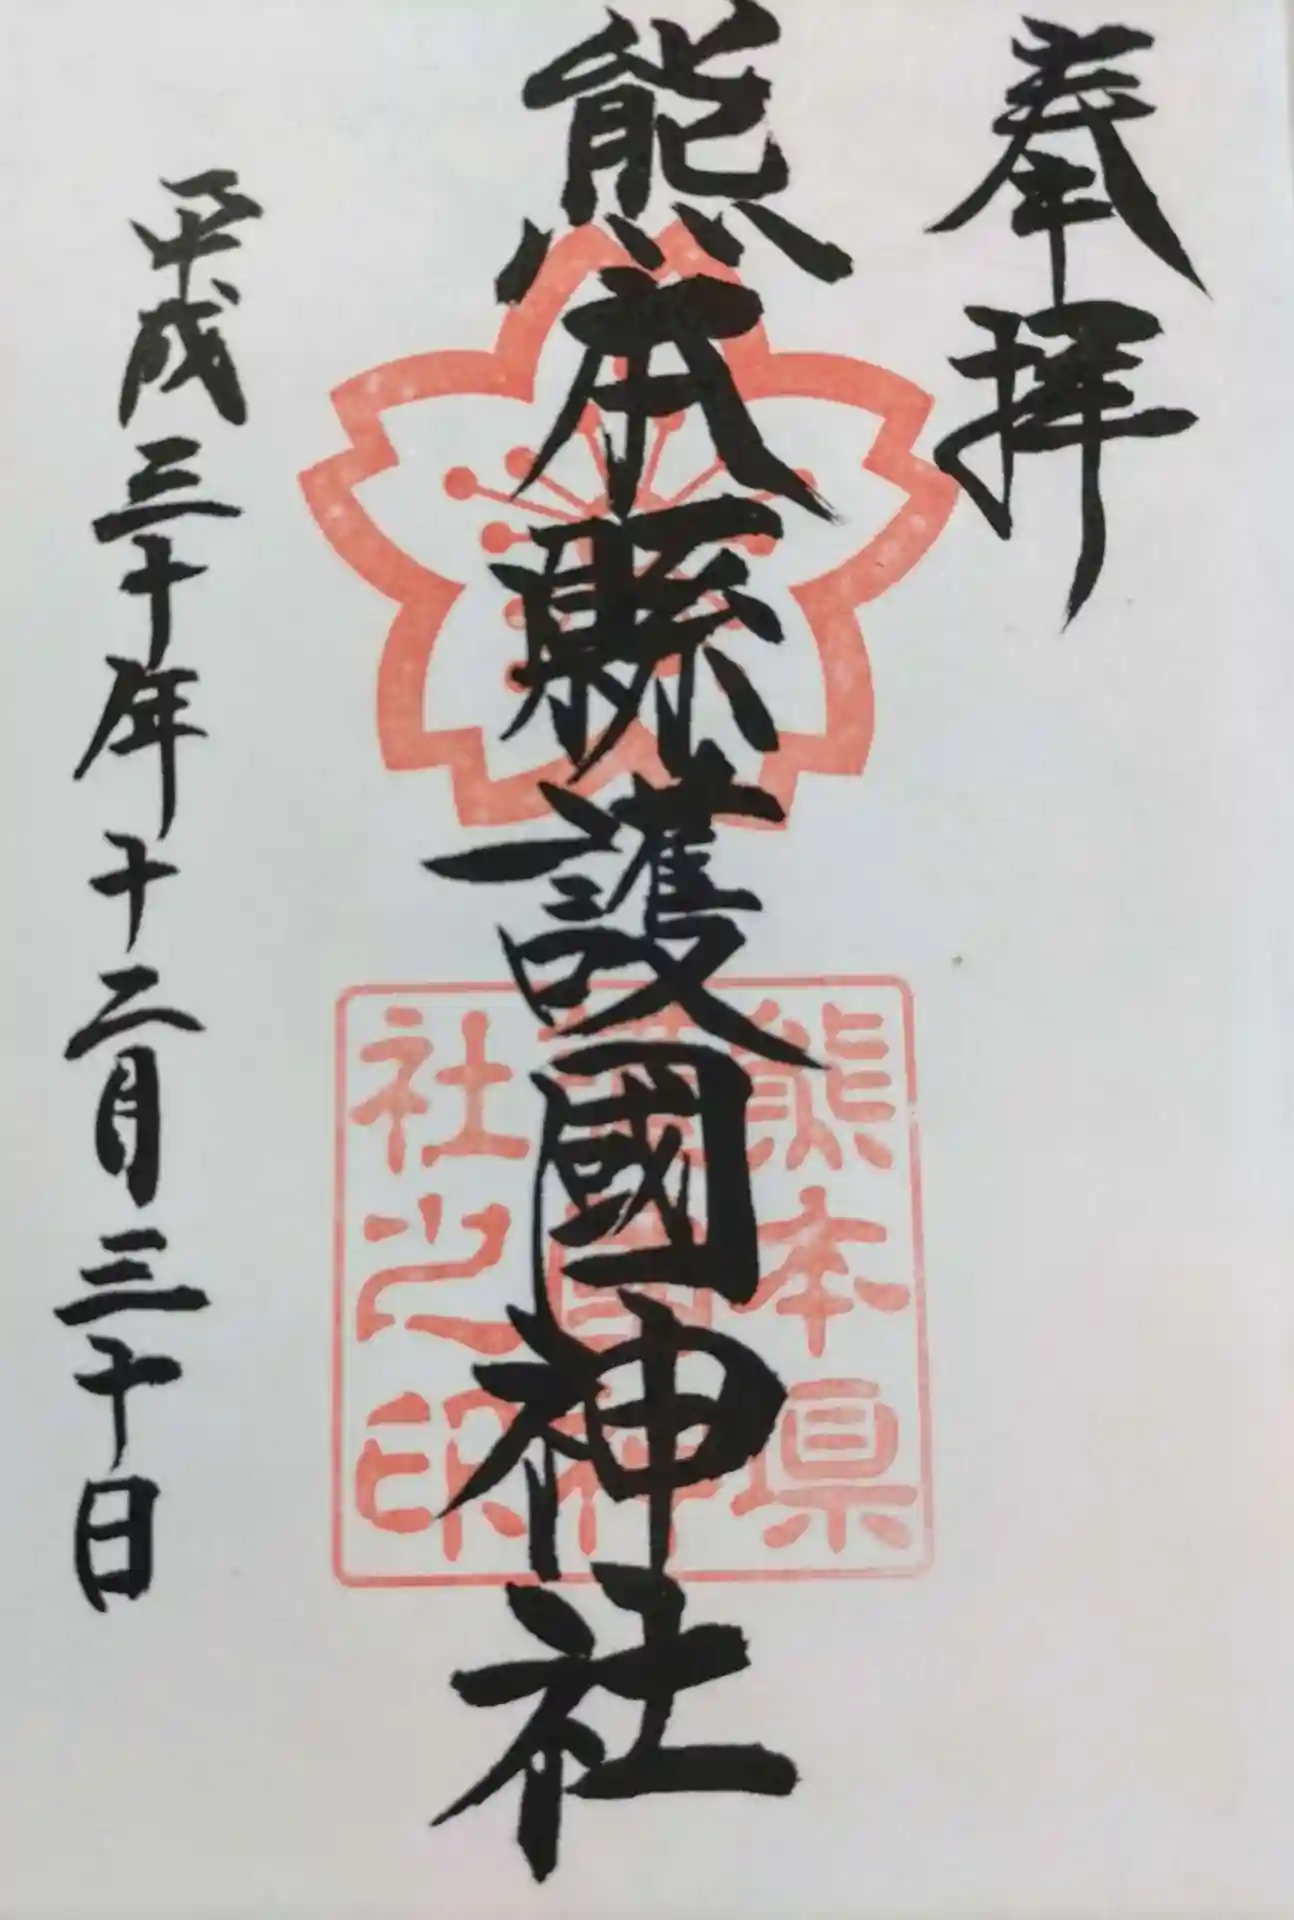 奉拝
熊本縣護國神社
平成三十年十二月三十日
熊本県
護国神
社之印